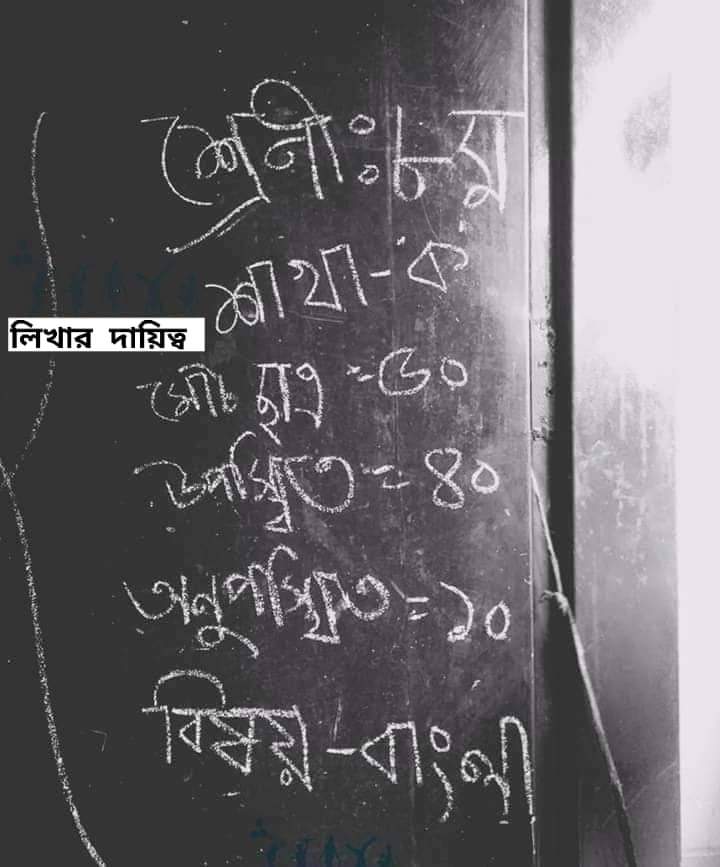 শ্রেণী:৮-ম
শাখা-ক
লিখার দায়িত্ব
মোট ছাত্র =৫০
উপস্থিতি=৪০
অনুপস্থিত=১০
বিষয়-বাংলা